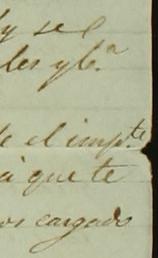 y se
les y b.ª
el imp.te
á que te
os cargado